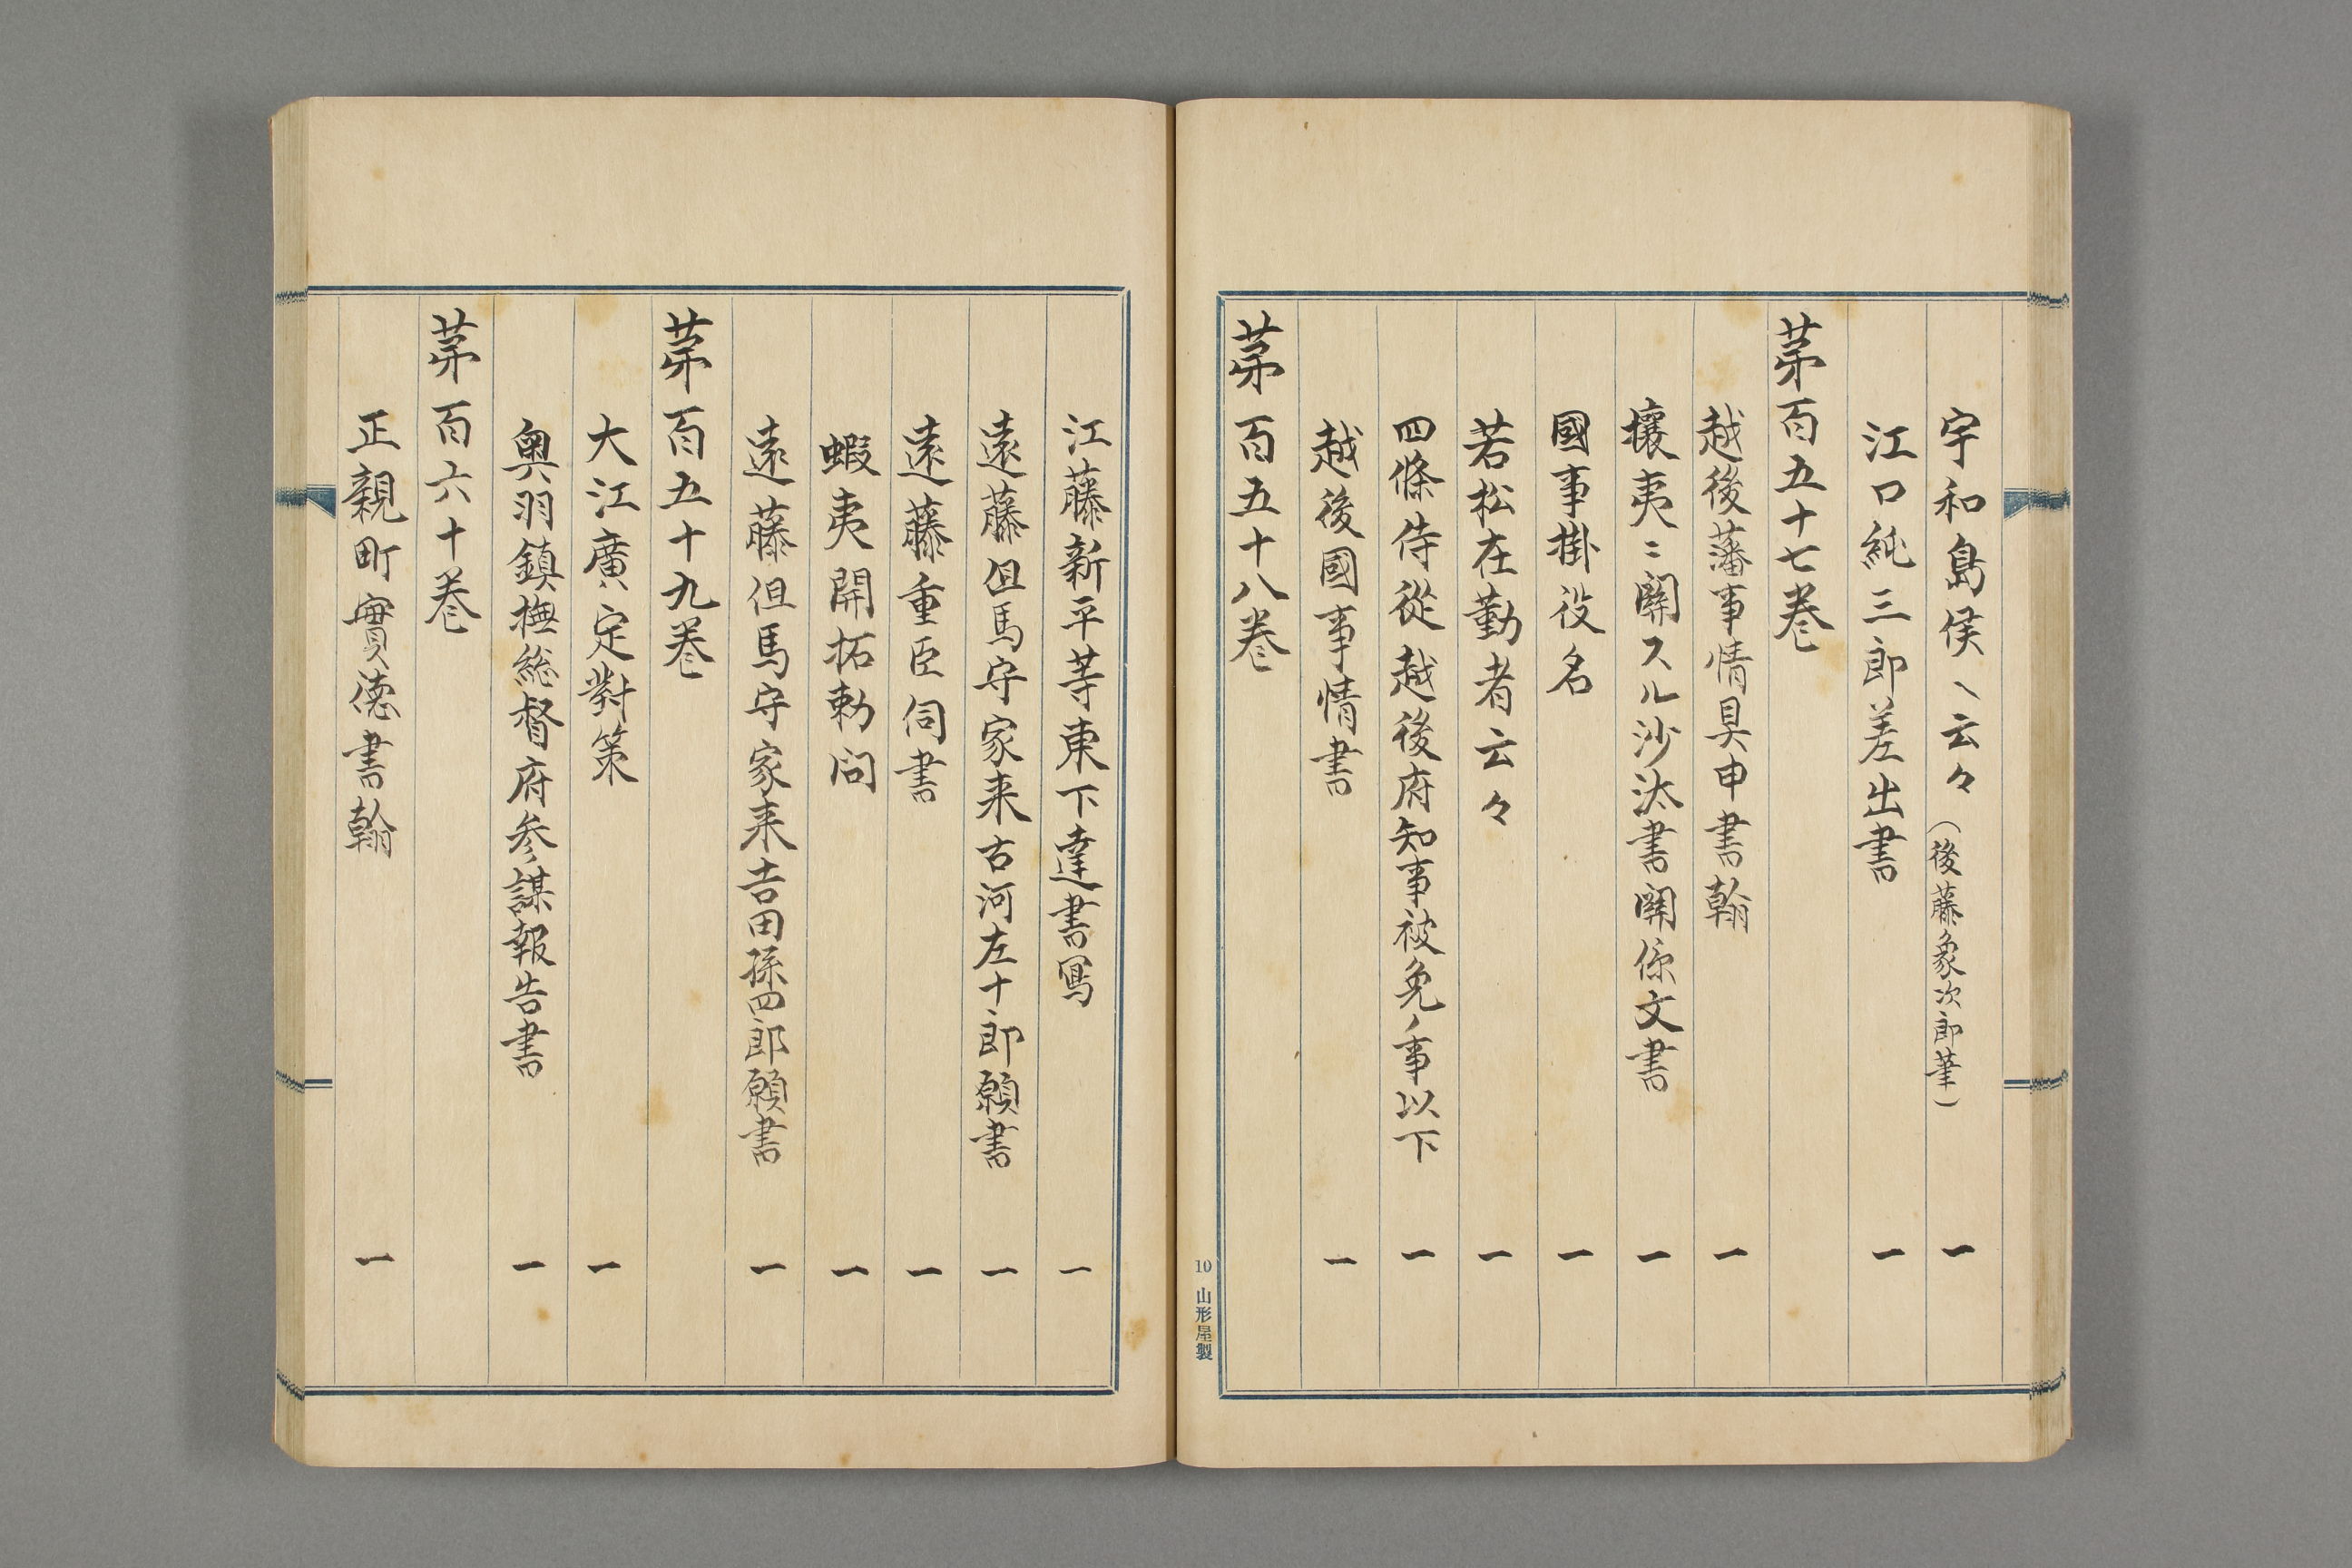 宇和島侯ヘ云々(後藤象次郎筆) 一
江口純三郎差出書 一
第百五十七巻
越後藩事情具申書翰 一
攘夷ニ関スル沙汰書関係文書 一
國事掛役名 一
若松在勤者云々 一
四條侍從越後府知事被免ノ事以下 一
越後國事情書 一
第百五十八巻
10 山形屋製
江藤新平等東下達書寫 一
遠藤但馬守家来古河左十郎願書 一
遠藤重臣伺書 一
蝦夷開拓勅問 一
遠藤但馬守家来吉田孫四郎願書 一
第百五十九巻
大江廣ハ定對策 一
奥羽鎮撫総督府参謀報告書 一
第百六十巻
正親町實徳書翰 一